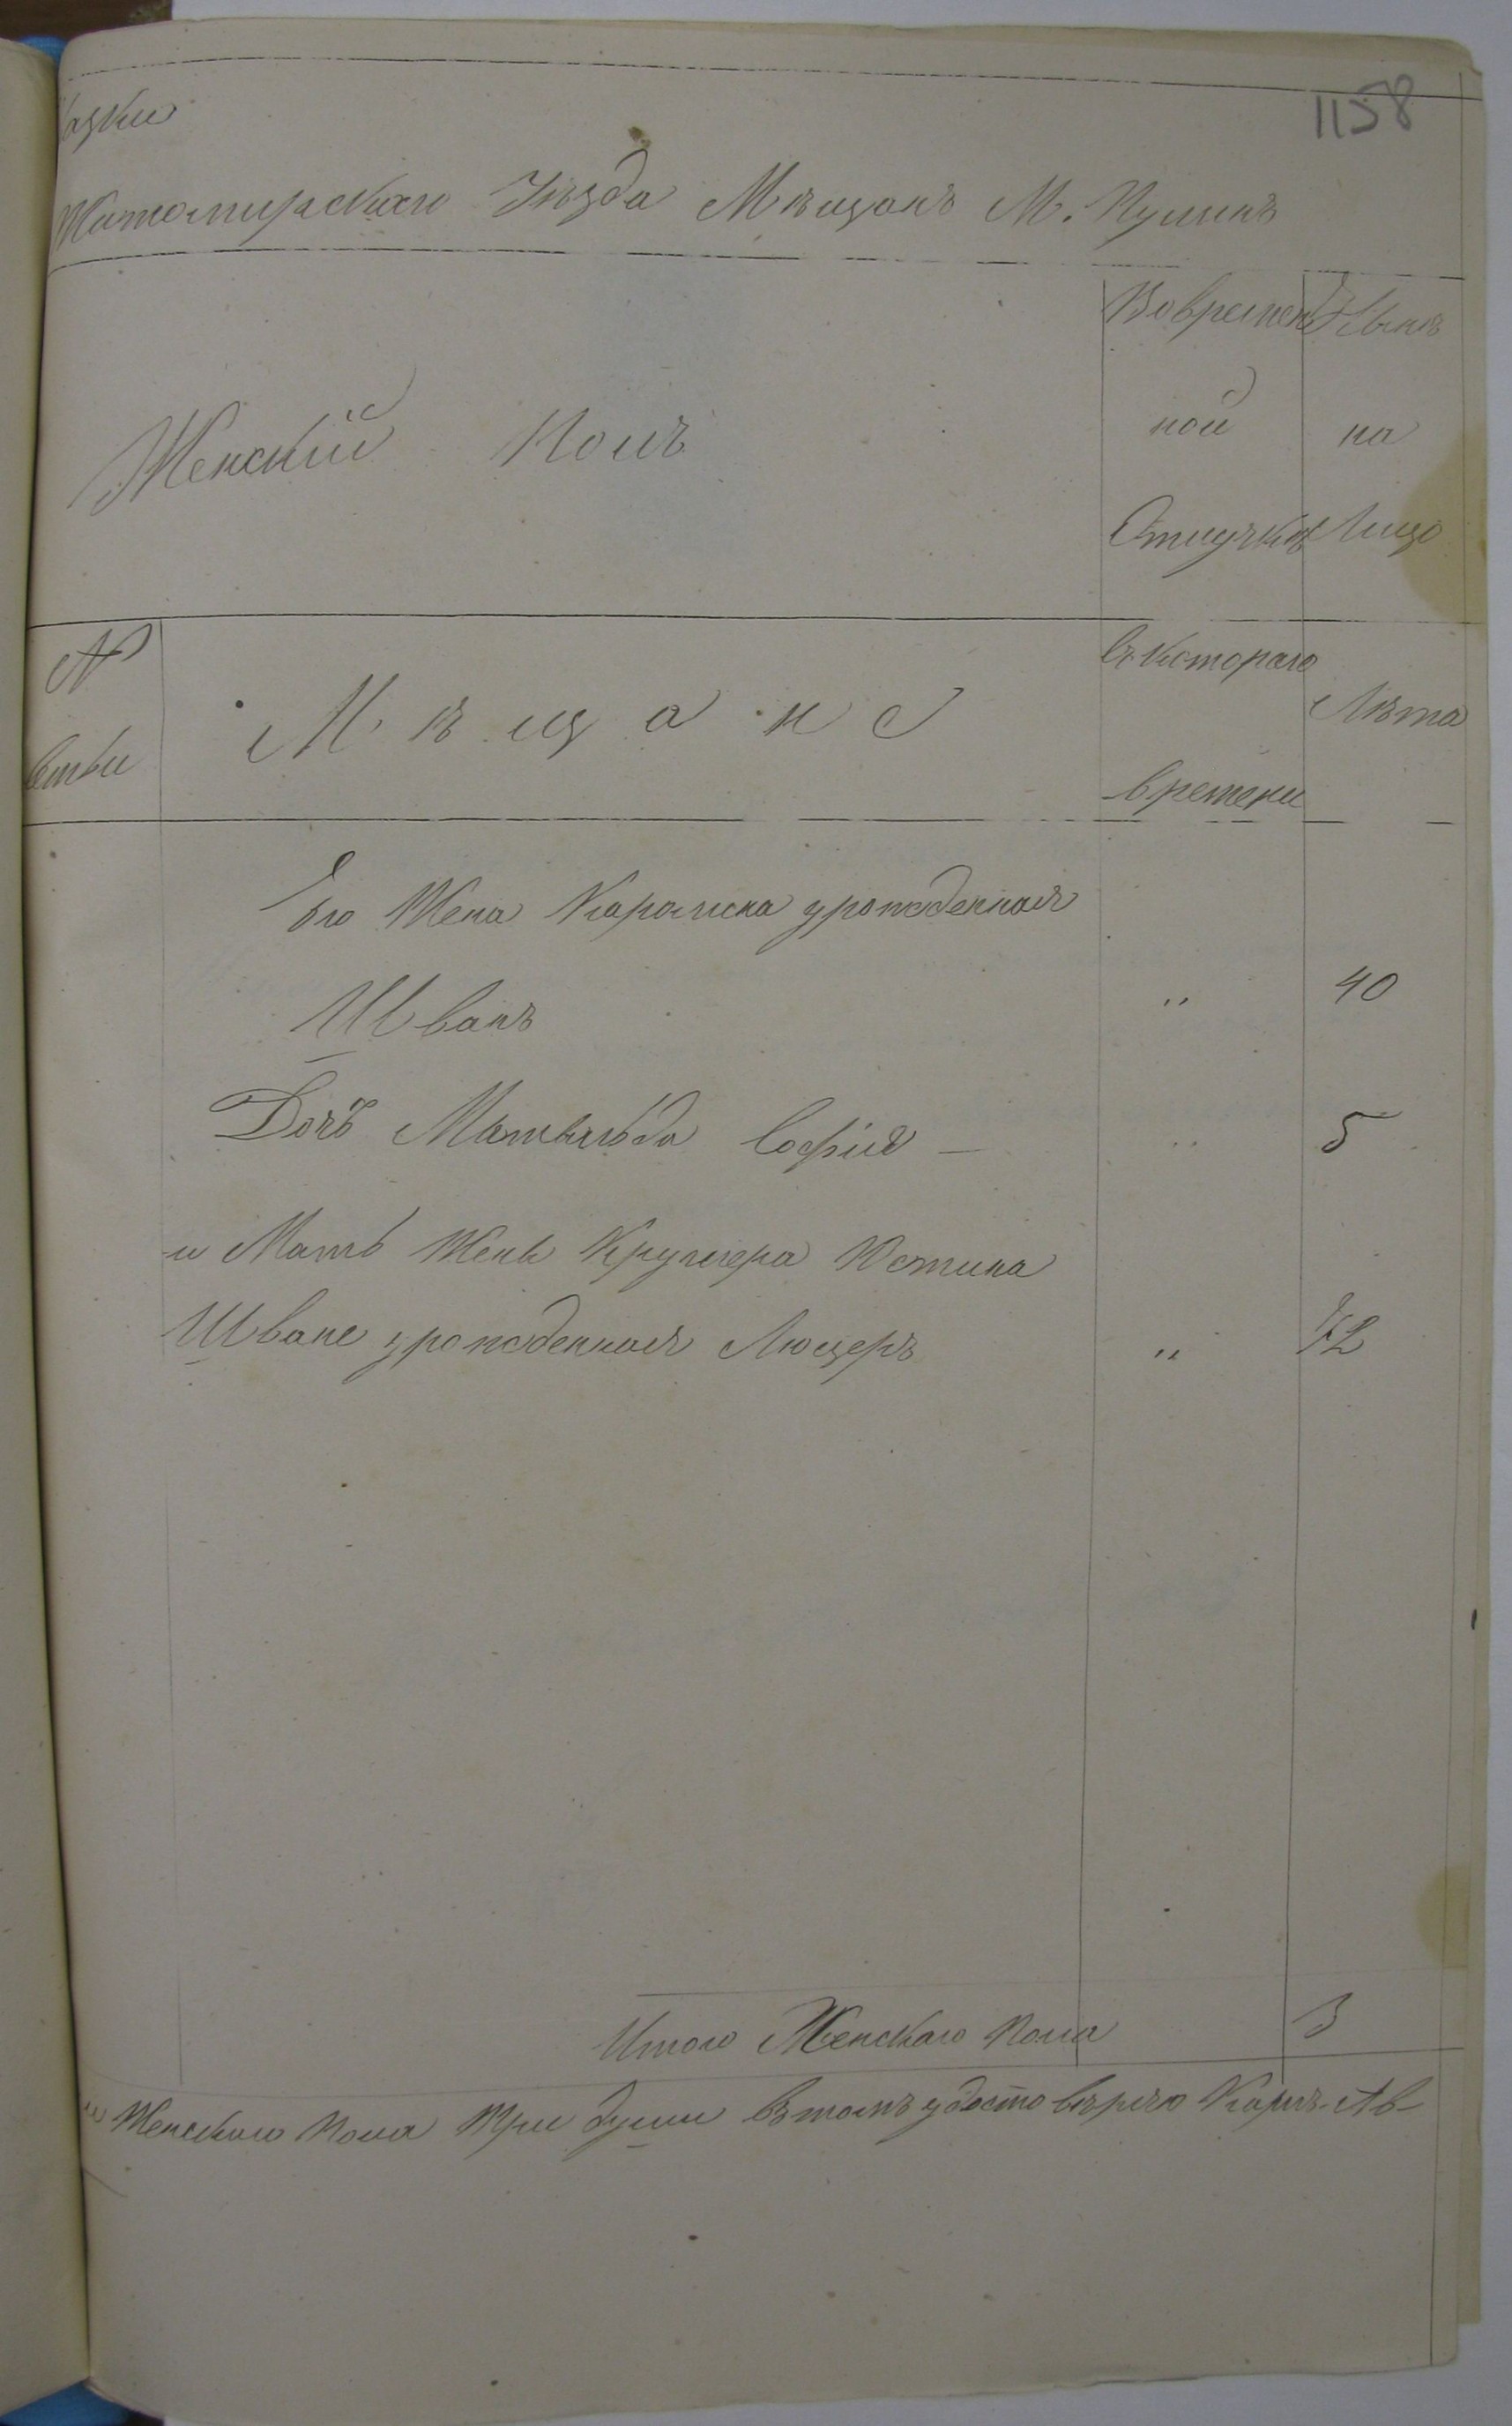 1158
азки
Житомирскаго Уѣзда Мѣщанъ М. Кулинъ
Женскій Полъ
Во времен
ной
Отлучкѣ
Нынѣ
на
Лицо
№
емьи
Мѣщане
съ котораго
времени
Лѣта
Его Жена Каролина урожденная
Шванъ " 40
Дочь Матильда Софія — " 5
и Мать Жены Крумгера Юстина
Шване урожденная Люцеръ " 72
Итого Женскаго Пола 3
и Женскаго Пола три души въ томъ удостовѣряю